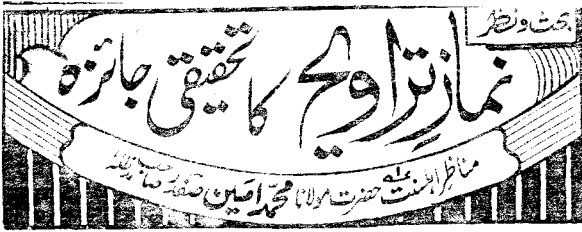 بحث و نظر
نمازِ تراویح کا تحقیقی جائزہ
مناظر اہلسنت حضرت مولانا محمد امین صفدر صاحب مدظلہ